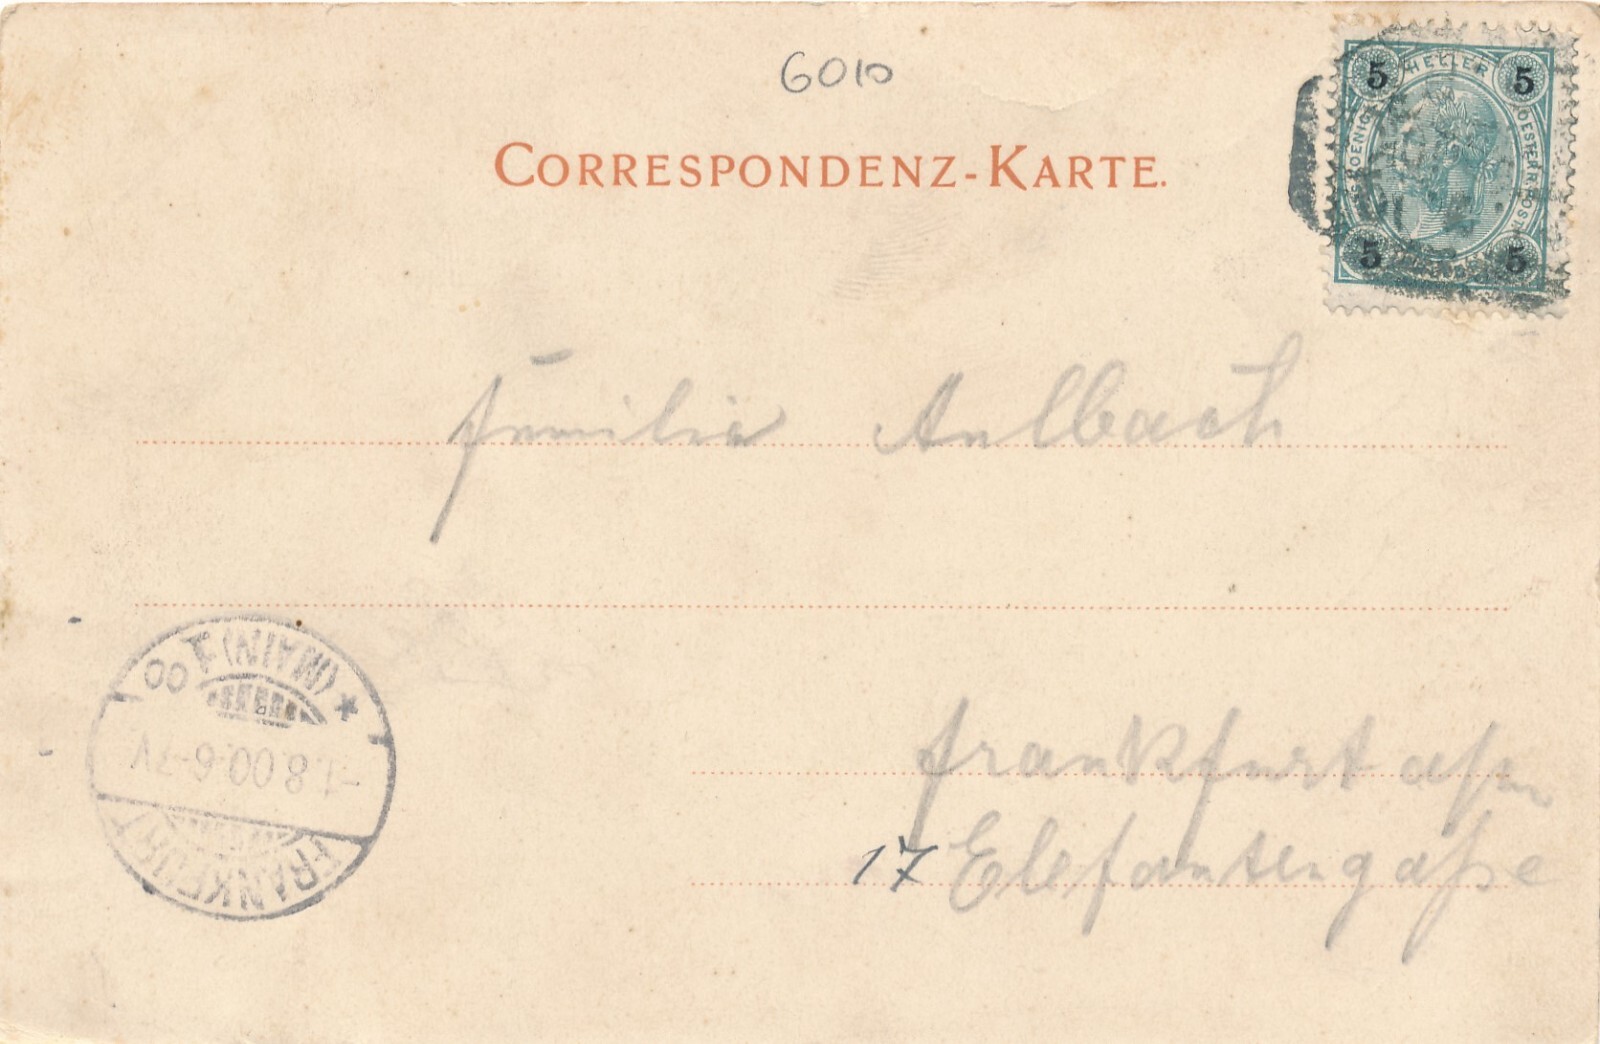 6010
CORRESPONDENZ-KARTE.
5 HELLER 5
5 5
Familie Aulbach
(MAIN) 1
00
-1.8.00.6-7V
FRANKFURT
Frankfurt a/m
17 Elefantengaße